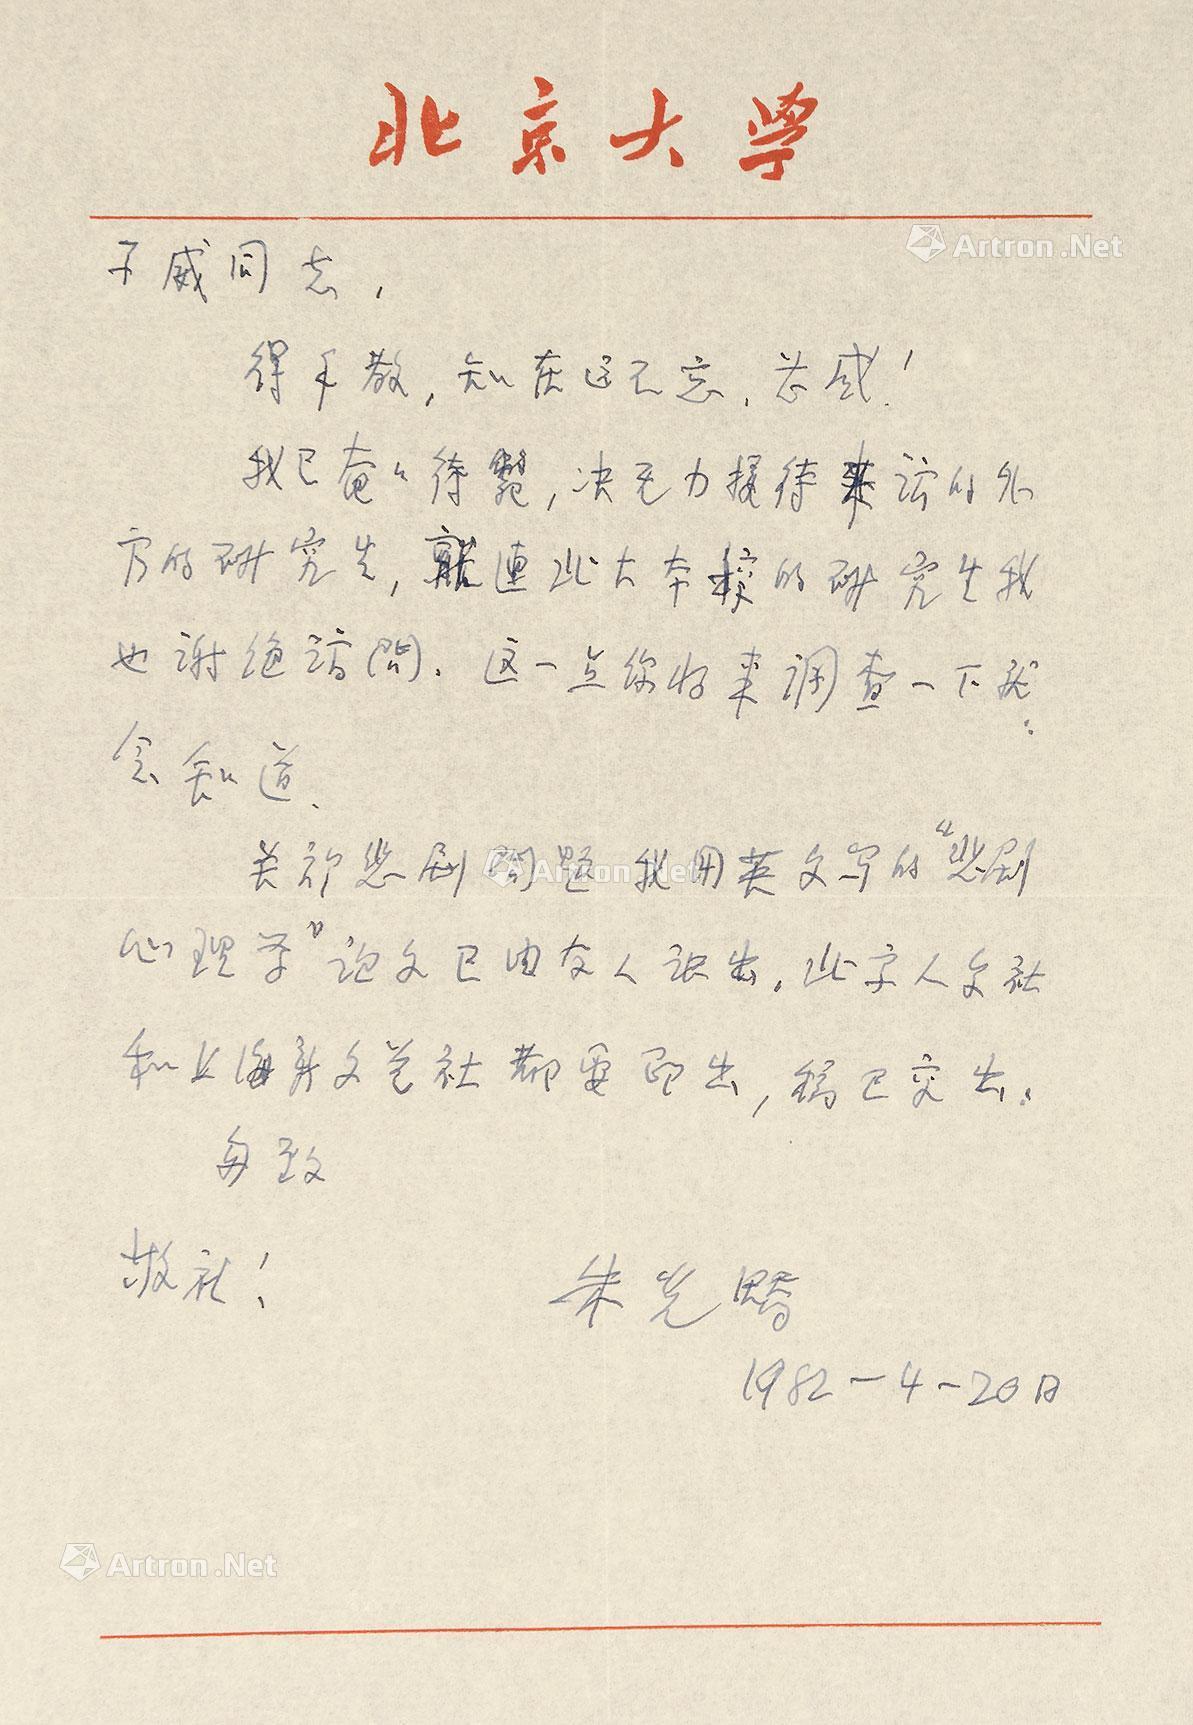 北京大学
子威同志，
得手教，知在远不忘，芯感！
我已奄々待毙，决无力接待来访的外
方的研究生，就连北大本校的研究生我
也谢绝访问。这一点你将来调查一下就
会知道。
关于悲剧问题我用英文写的“悲剧
心理学”论文已由友人译出。北京人文社
和上海新文艺社都要印出，稿已交出。
匆致
敬礼！
朱光潜
1982-4-20日
Artron.Net
Artron.Net
Artron.Net